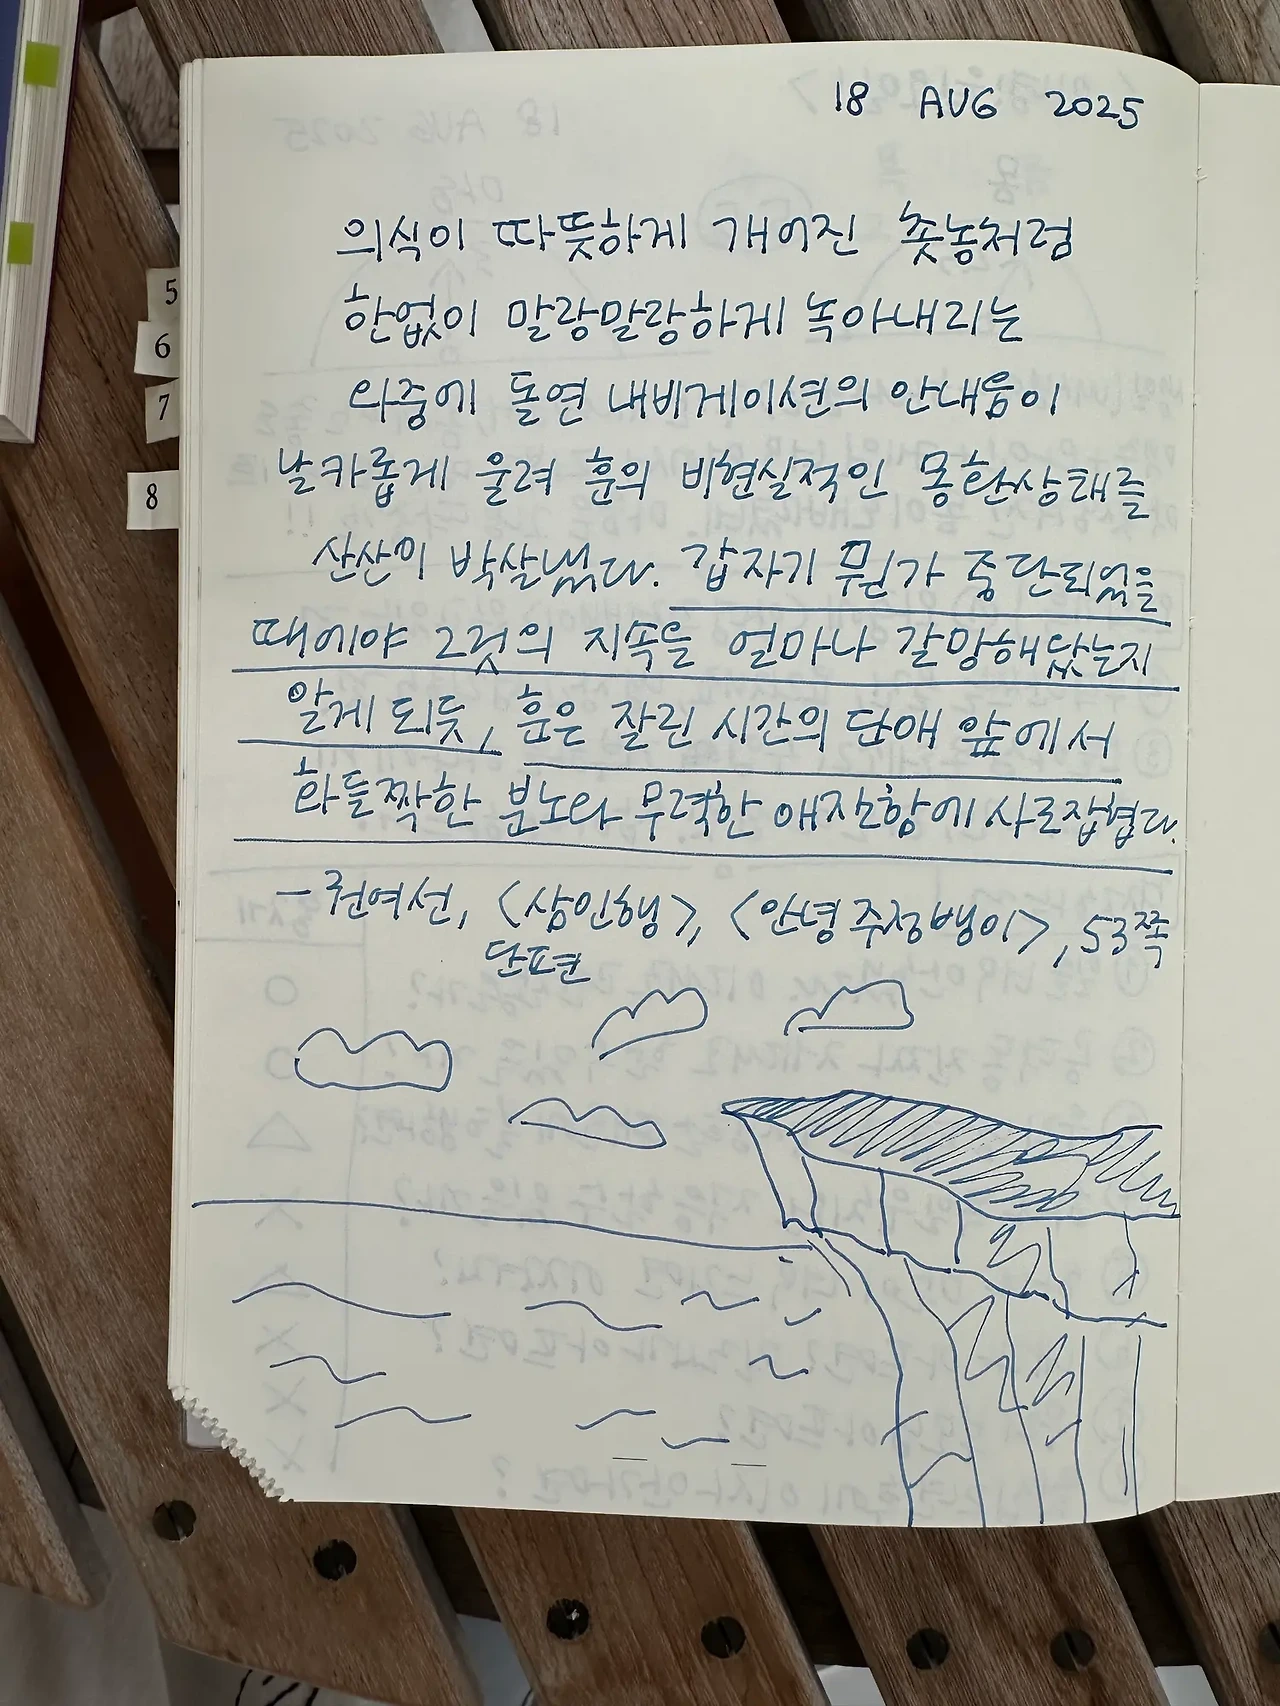 18 AUG 2025
의식이 따뜻하게 개어진 촛농처럼
한없이 말랑말랑하게 녹아내리는
와중에 돌연 내비게이션의 안내음이
날카롭게 울려 훈의 비현실적인 몽환상태를
산산이 박살냈다. 갑자기 뭔가 중단되었을
때에야 그것의 지속을 얼마나 갈망해왔는지
알게 되듯, 훈은 잘린 시간의 단애 앞에서
화들짝한 분노와 무력한 애잔함에 사로잡혔다.
- 권여선, <삼인행>, <안녕 주정뱅이>, 53쪽
단편
5
6
7
8